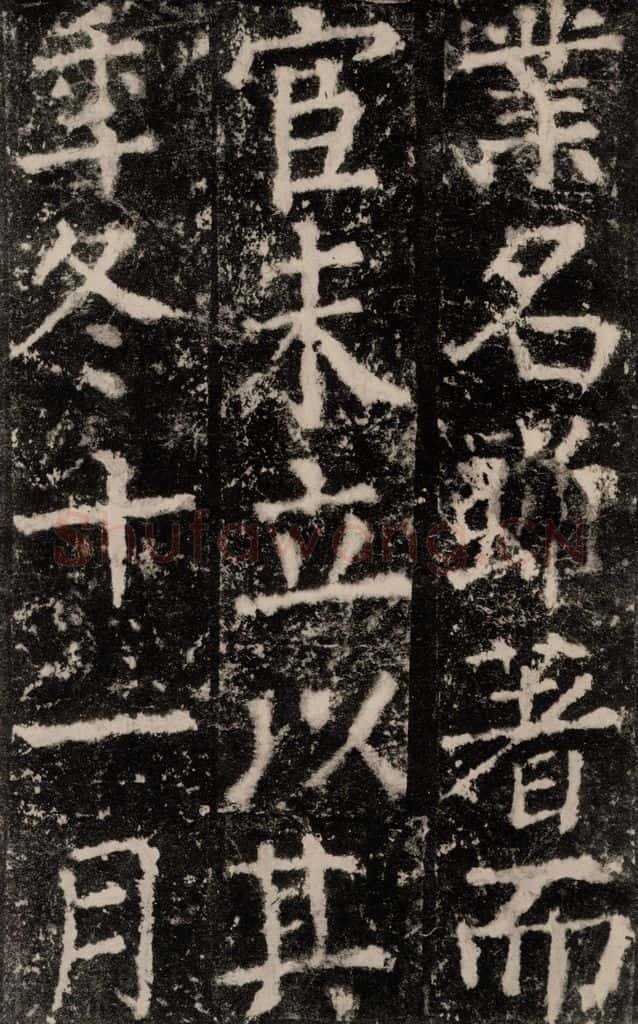 業名著而
官未立以其
年冬十一月
Shufawang.CN